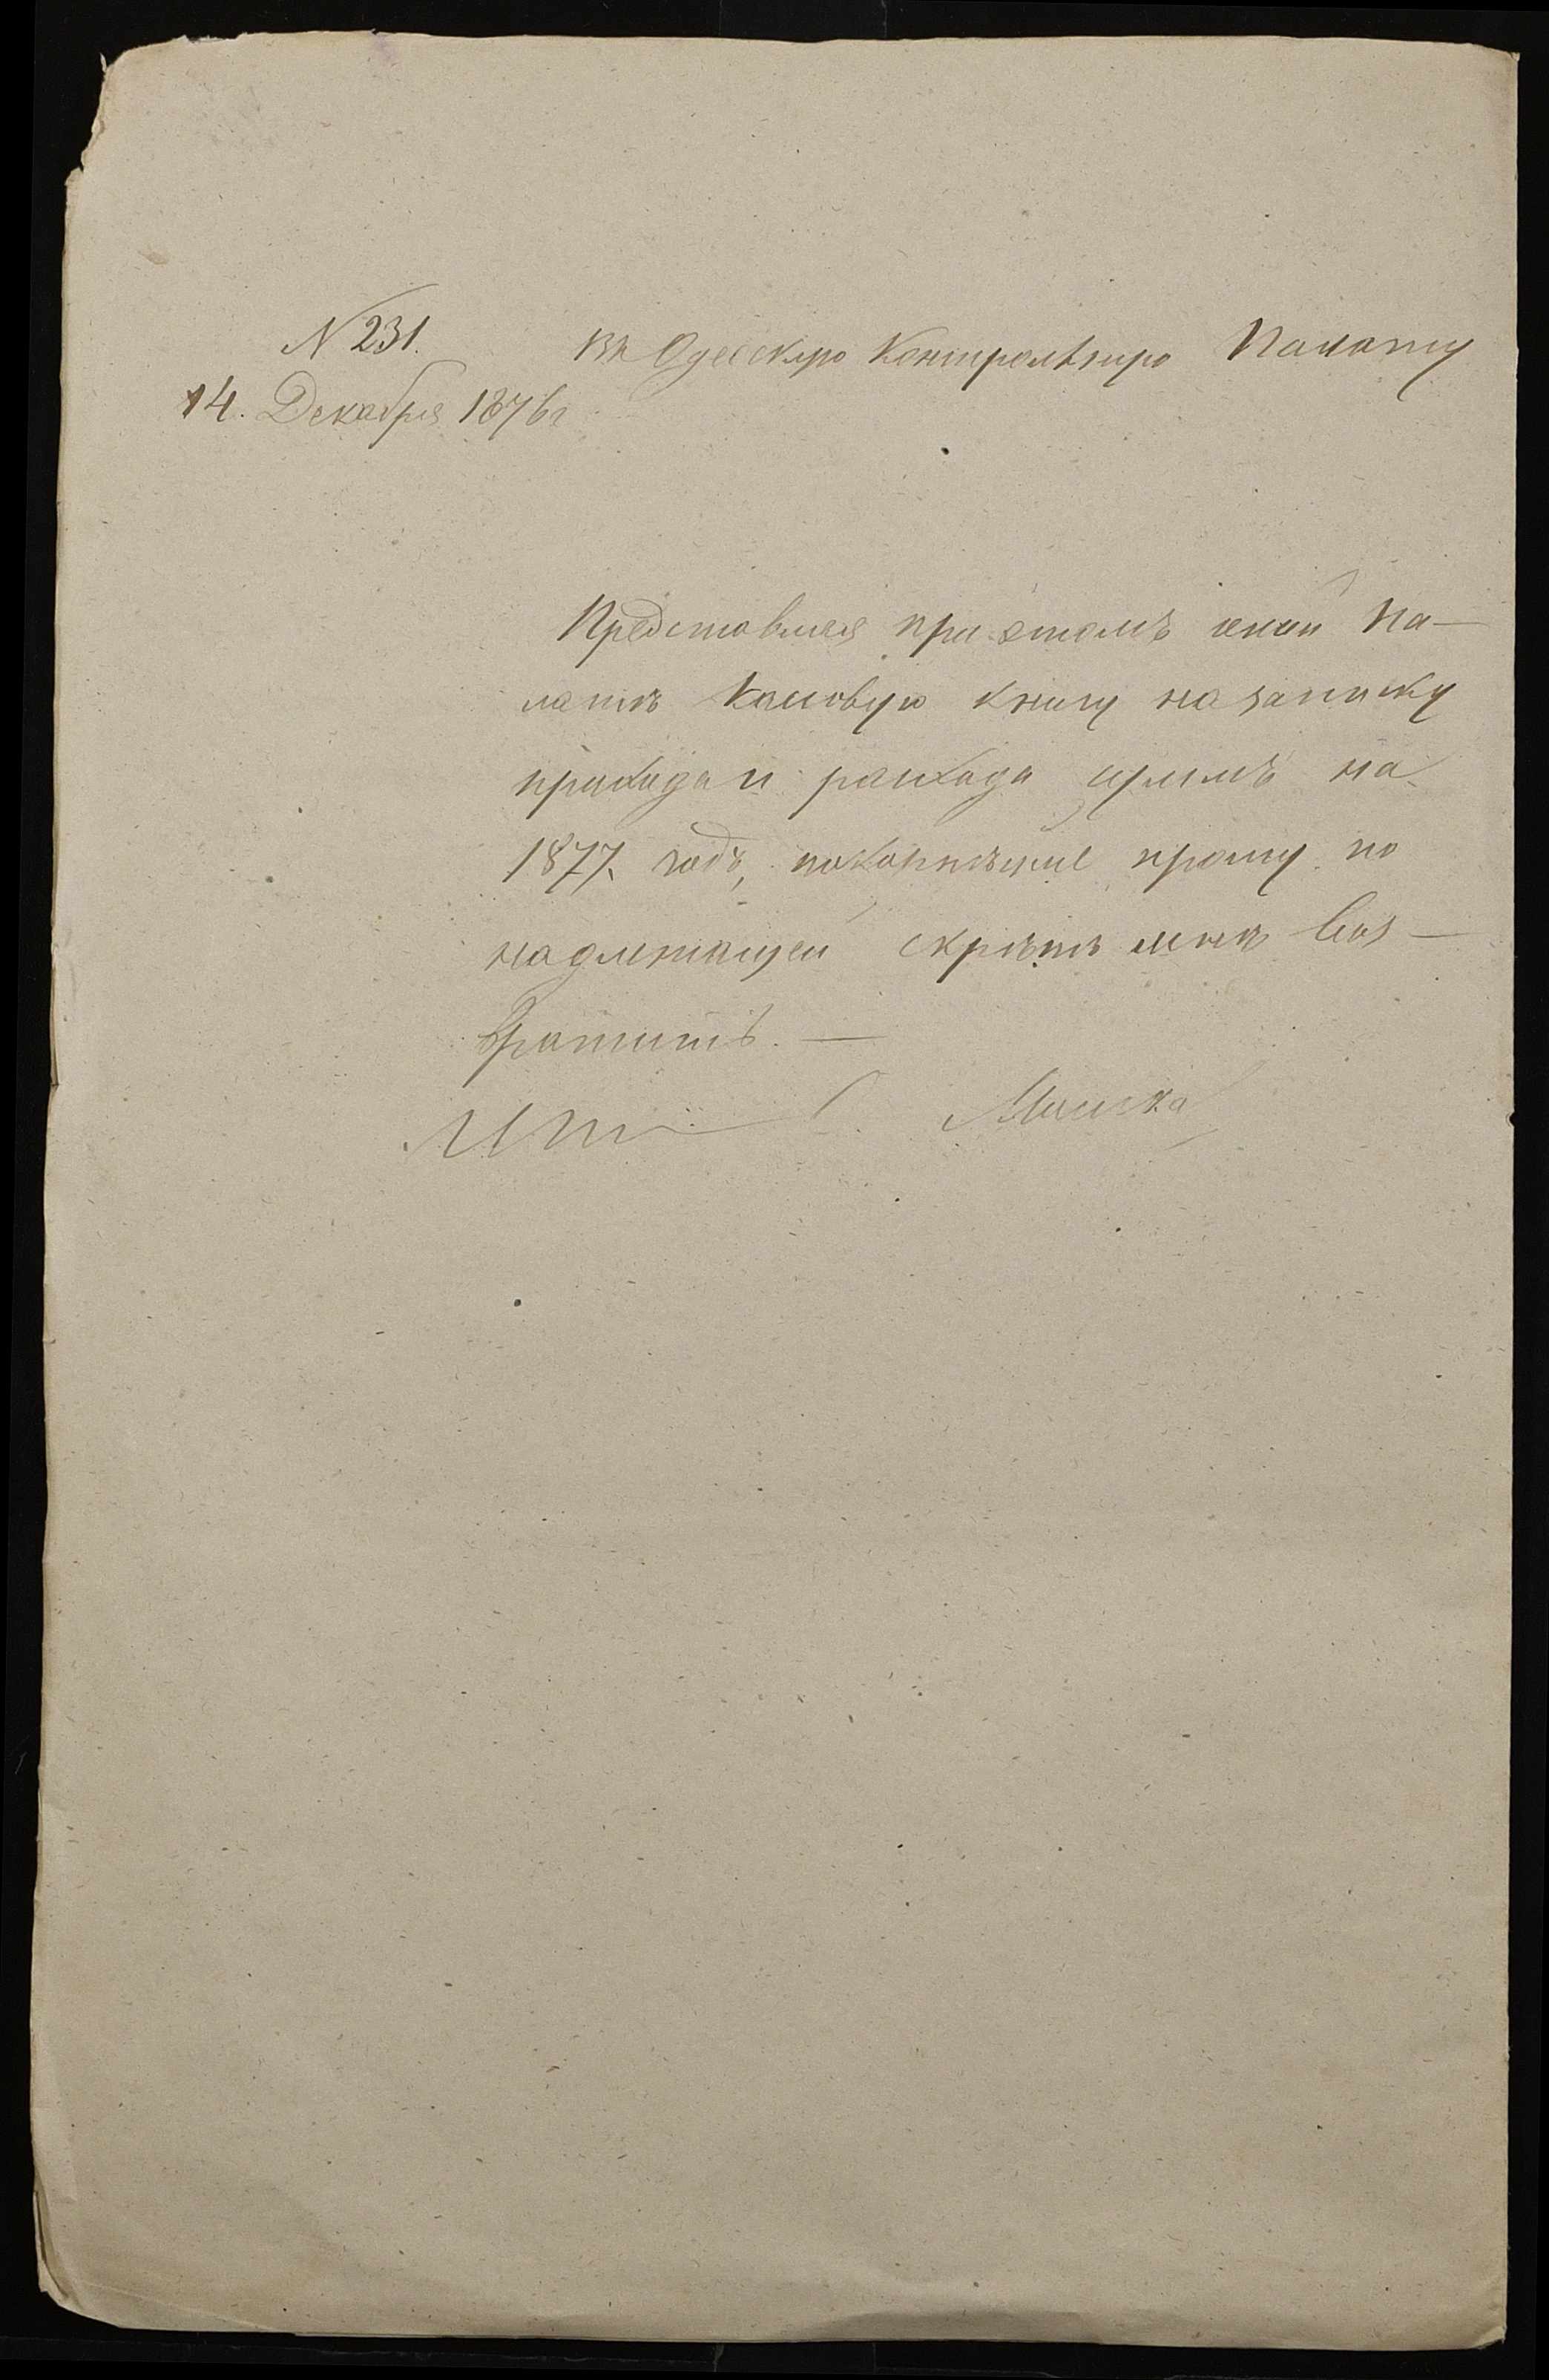 N 231.
14. Декабря 1876 г
Въ Одесскую Контрольную Палату
Представляя при этомъ оной Па-
латѣ Кассовую книгу на записку
прихода и расхода суммъ на
1877 годъ, покорнѣйше прошу по
надлежащей скрѣпѣ мнѣ воз-
вратить. —